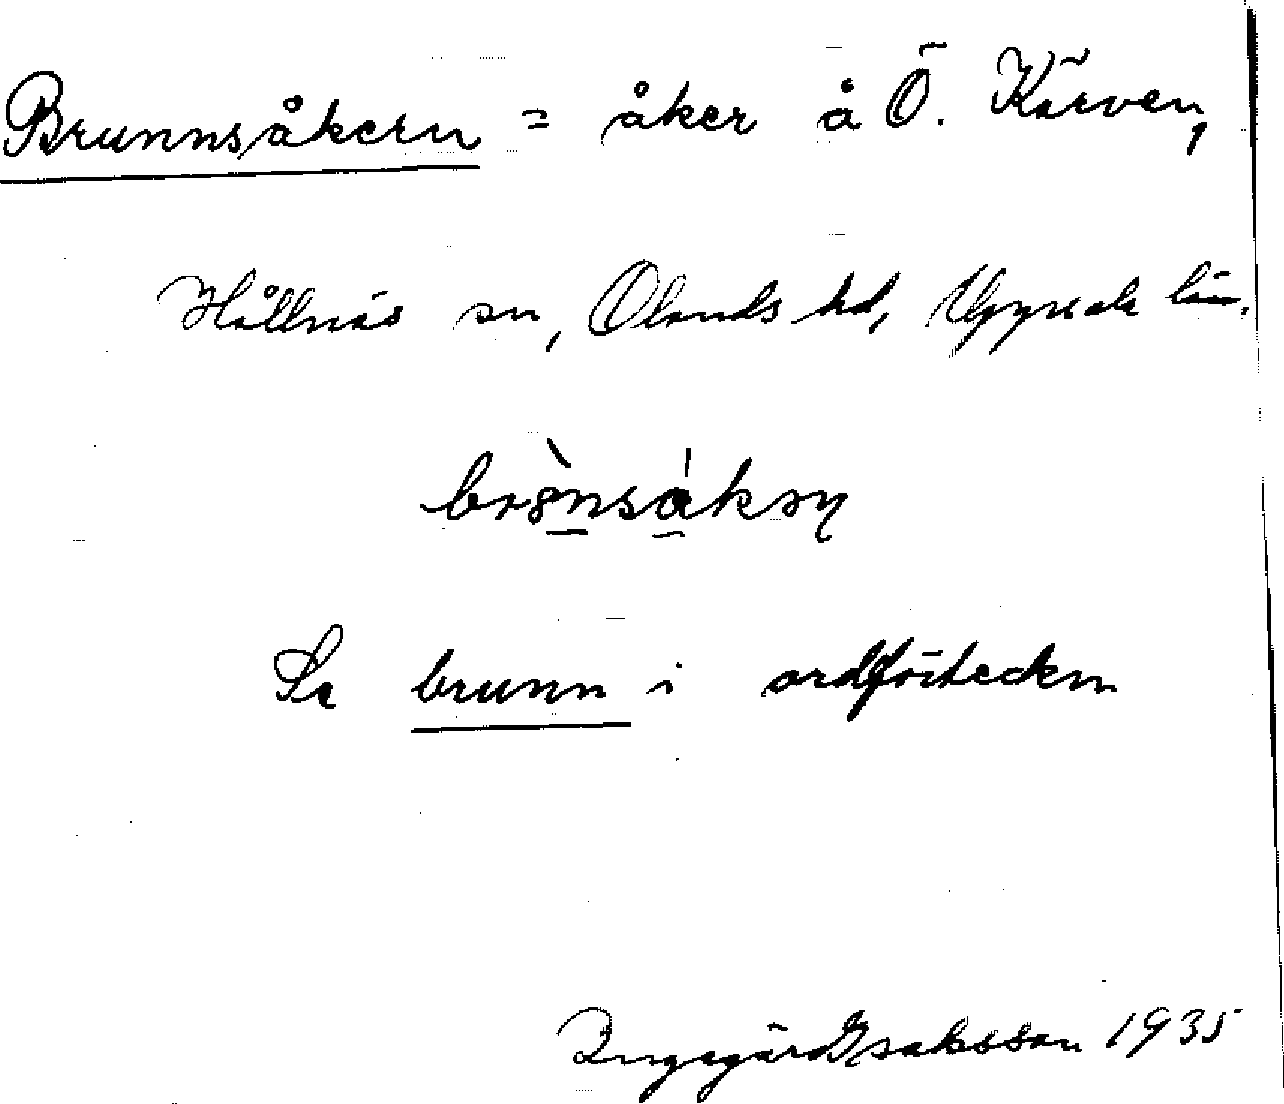 Brunnsåkern = åker å Ö. Kärven,
Hållnäs sn, Olands hd, Uppsala län.
Se brunn i ordförteckn
Ingegärd Isaksson 1935